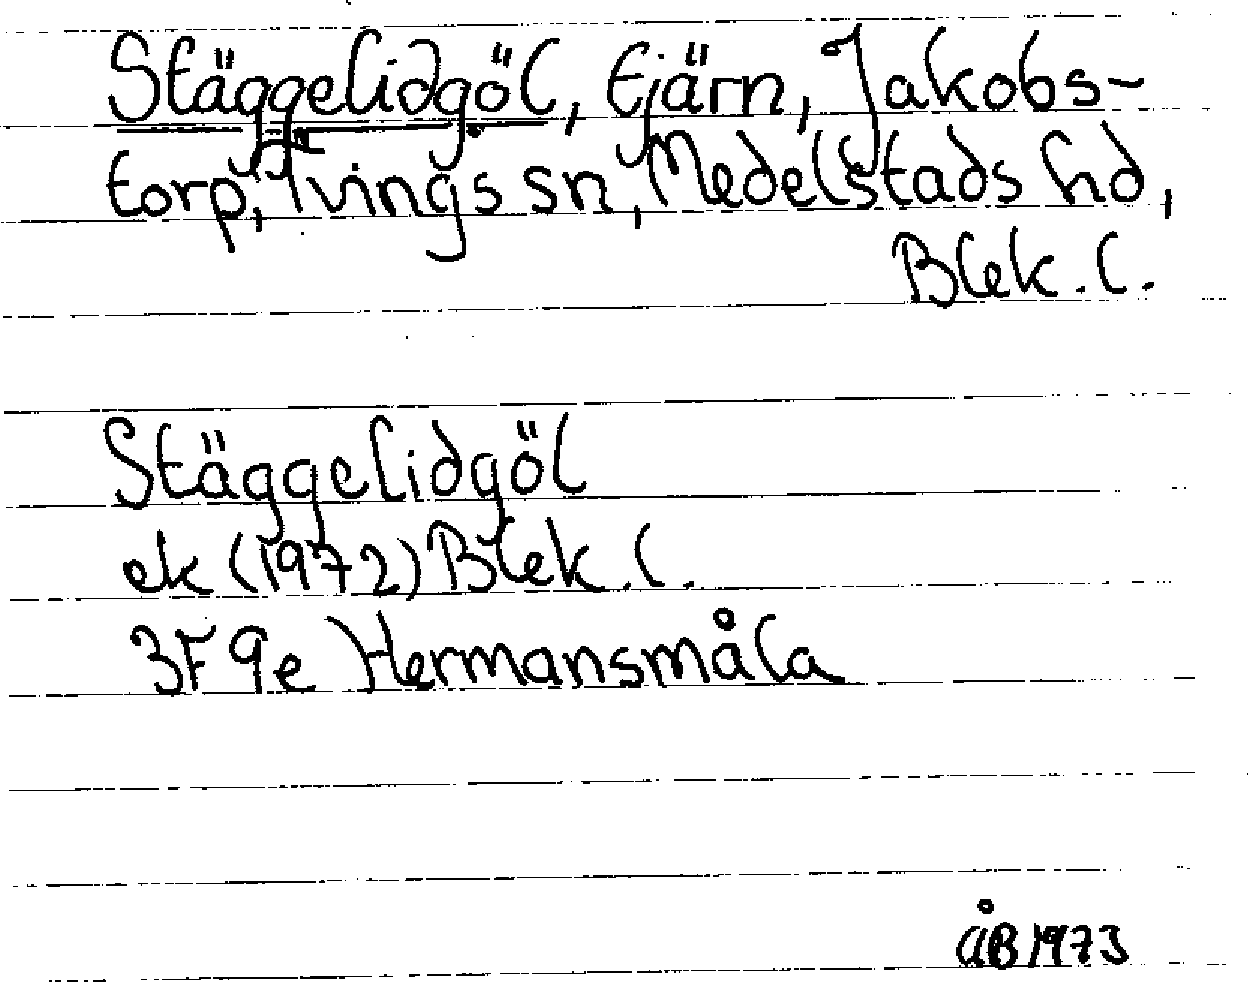 Stäggelidgöl, tjärn, Jakobs-
torp, Tvings sn, Medelstads hd,
Blek. l.
Stäggelidgöl
ek (1972) Blek. l.
3F 9e Hermansmåla
ÅB 1973